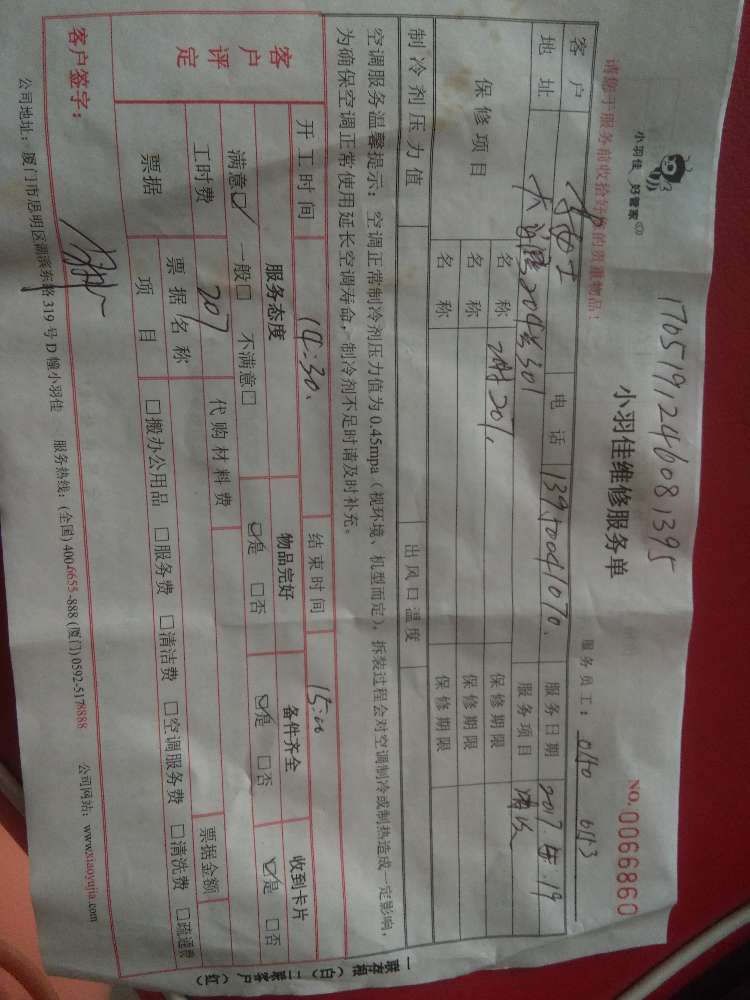 小羽佳 好管家
170519124608 1395
小羽佳维修服务单
NO.0066860
请您于服务前收拾好您的贵重物品!
服务员工: 0140 6113
客户 女士 电话 13950041070. 服务日期 2017.5.19
地址 204号301 服务项目 清洗
保修项目 名称 保修期限
名称 保修期限
名称 保修期限
制冷剂压力值 出风口温度
空调服务温馨提示: 空调正常制冷剂压力值为0.45mpa(视环境、机型而定),拆装过程会对空调制冷或制热造成一定影响,
为确保空调正常使用延长空调寿命,制冷剂不足时请及时补充。
开工时间 14:30. 结束时间 15:00
客户评定 服务态度 物品完好 备件齐全 收到卡片
满意☑ 一般□ 不满意□ ☑是 □否 ☑是 □否 ☑是 □否
工时费 207 代购材料费 票据金额
票据 票据名称
项目 □搬办公用品 □服务费 □清洁费 □空调服务费 □清洗费 □疏通费
客户签字:
公司地址: 厦门市思明区湖滨东路319号D幢小羽佳 服务热线: (全国)400-6655-888 (厦门)0592-5178888 公司网站: www.xiaoyujia.com
一联存根(白) 二联客户(红)